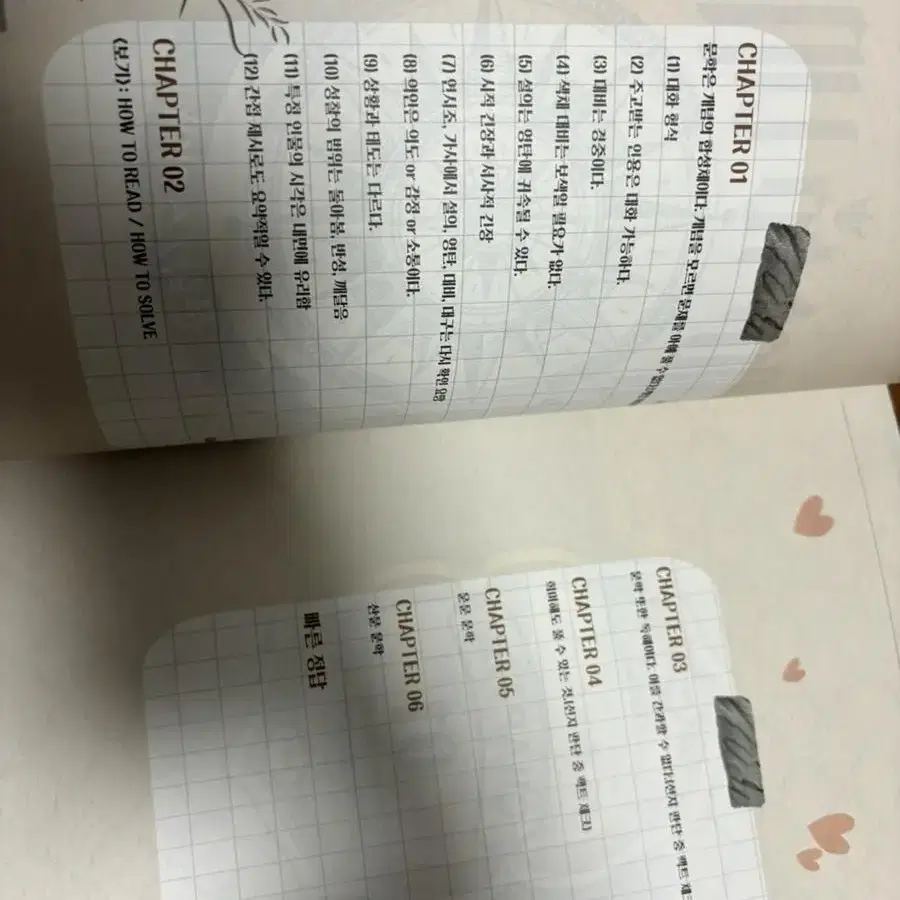 CHAPTER 01
문학은 개념의 합성체이다. 개념을 모르면 문제를 아예 풀 수 없다
(1) 대화 형식
(2) 주고받는 인용은 대화 가능하다.
(3) 대비는 경중이다.
(4) 색채 대비는 보색일 필요가 없다.
(5) 설의는 영탄에 귀속될 수 있다.
(6) 시적 긴장과 서사적 긴장
(7) 연시조, 가사에서 설의, 영탄, 대비, 대구는 다시 확인 요망
(8) 의인은 의도 or 감정 or 소통이다.
(9) 상황과 태도는 다르다.
(10) 성찰의 범위는 돌아봄, 반성, 깨달음
(11) 특정 인물의 시각은 내면에 유리함
(12) 간접 제시로도 요약적일 수 있다.
CHAPTER 02
<보기>: HOW TO READ / HOW TO SOLVE
CHAPTER 03
문학 또한 독해이다. 이를 간과할 수 없다.(선지 판단 중 팩트 체
CHAPTER 04
희미해도 풀 수 있는 것.(선지 판단 중 팩트 체크)
CHAPTER 05
운문 문학
CHAPTER 06
산문 문학
빠른 정답